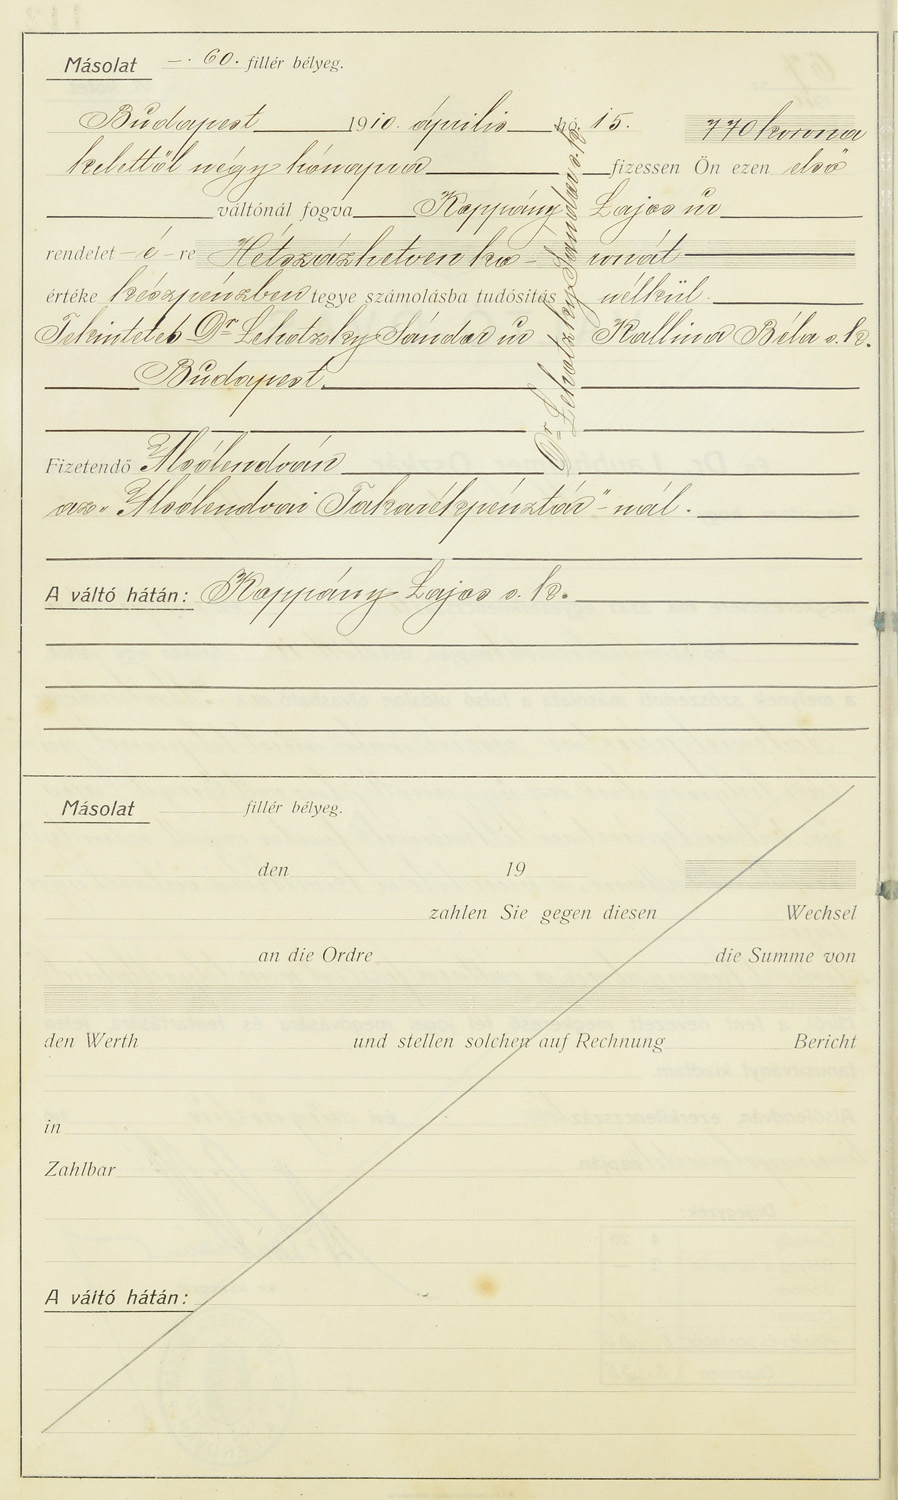 Másolat —. 60. fillér bélyeg.
Budapest 1910. április hó. 15. 770 korona
kelettől négy hónapra fizessen Ön ezen első
váltónál fogva Koppány Lajos úr
rendelet - é - re Hétszázhetven ko- ronát
értéke készpénzben tegye számolásba tudósítás nélkül.
Tekintetes Dr Lehotzky Sándor úr Kallina Béla s. k.
Budapest.
Dr Lehotzky Sándor s. k.
Fizetendő Alsólendván
az „Alsólendvai Takarékpénztár"-nál.
A váltó hátán: Koppány Lajos s. k.
Másolat fillér bélyeg.
den 19
zahlen Sie gegen diesen Wechsel
an die Ordre die Summe von
den Werth und stellen solchen auf Rechnung Bericht
in
Zahlbar
A váltó hátán: